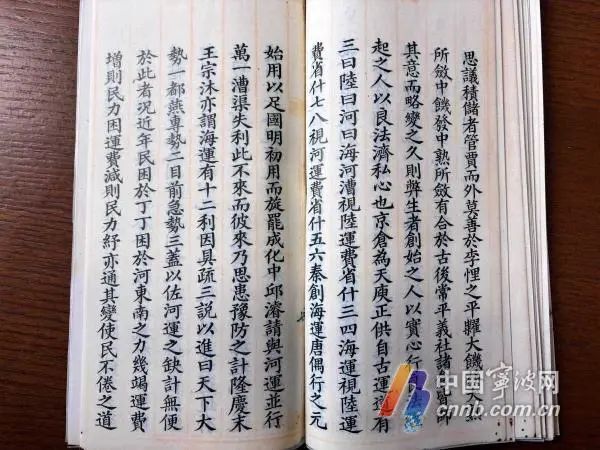 思議積儲者管賈而外莫善於李悝之平糶大饑
所斂中饑發中熟所斂有合於古後常平義社諸
其意而略變之久則弊生者創始之人以實心行
起之人以良法濟私心也京倉為天庾正供自古運道有
三曰陸曰河曰海河漕視陸運費省什三四海運視陸運
費省什七八視河運費省什五六秦創海運唐偶行之元
始用以足國明初用而旋罷成化中邱濬請與河運並行
萬一漕渠失利此不來而彼來乃思患豫防之計隆慶末
王宗沐亦謂海運有十二利因具疏三說以進曰天下大
勢一都燕專勢二目前急勢三蓋以佐河運之缺計無便
於此者況近年民困於丁丁困於河東南之力幾竭運費
增則民力困運費減則民力紓亦通其變使民不倦之道
中国宁波网
cnnb.com.cn